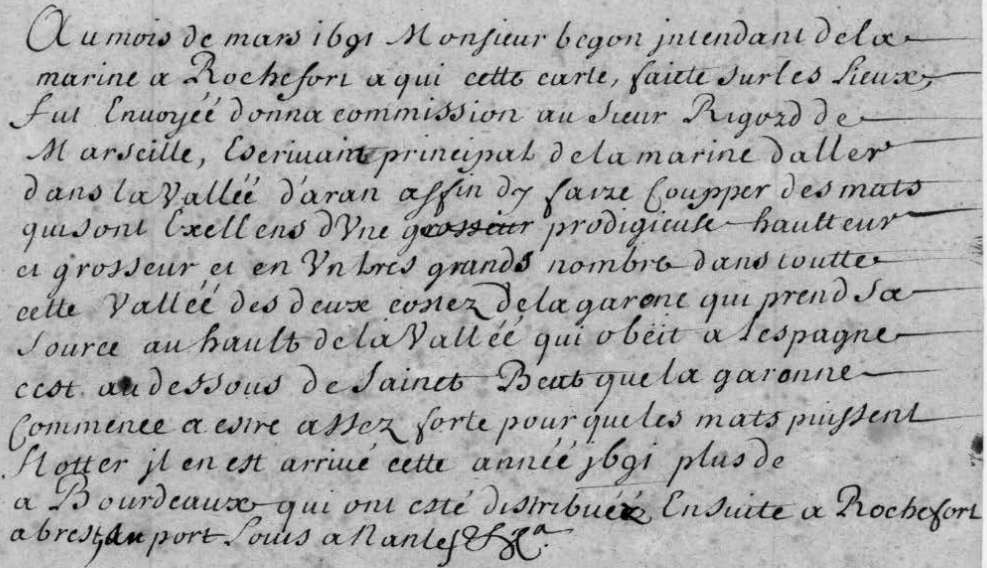 Au mois de mars 1691 Monsieur begon jntendant de la
marine a Rochefort a qui cette carte, faicte sur les Lieux,
fut Envoyéé donna commission au sieur Rigord de
Marseille, Escrivain principal de la marine daller
dans la Valléé d'aran affin dy faire Coupper des mats
qui sont Exellens d'Une grosseur prodigieuse haulteur
et grosseur et en Un tres grands nombre dans toutte
cette Valléé des deux costez de la garone qui prend sa
source au hault de la Valléé qui obeit a lespagne
cest au dessous de Sainct Beat que la garonne
Commence a estre assez forte pour que les mats puissent
flotter jl en est arrivé cette annéé 1691 plus de
a Bourdeaux qui ont esté distribuéz Ensuite a Rochefort
a brest, au port Louis a Nantes &ca.